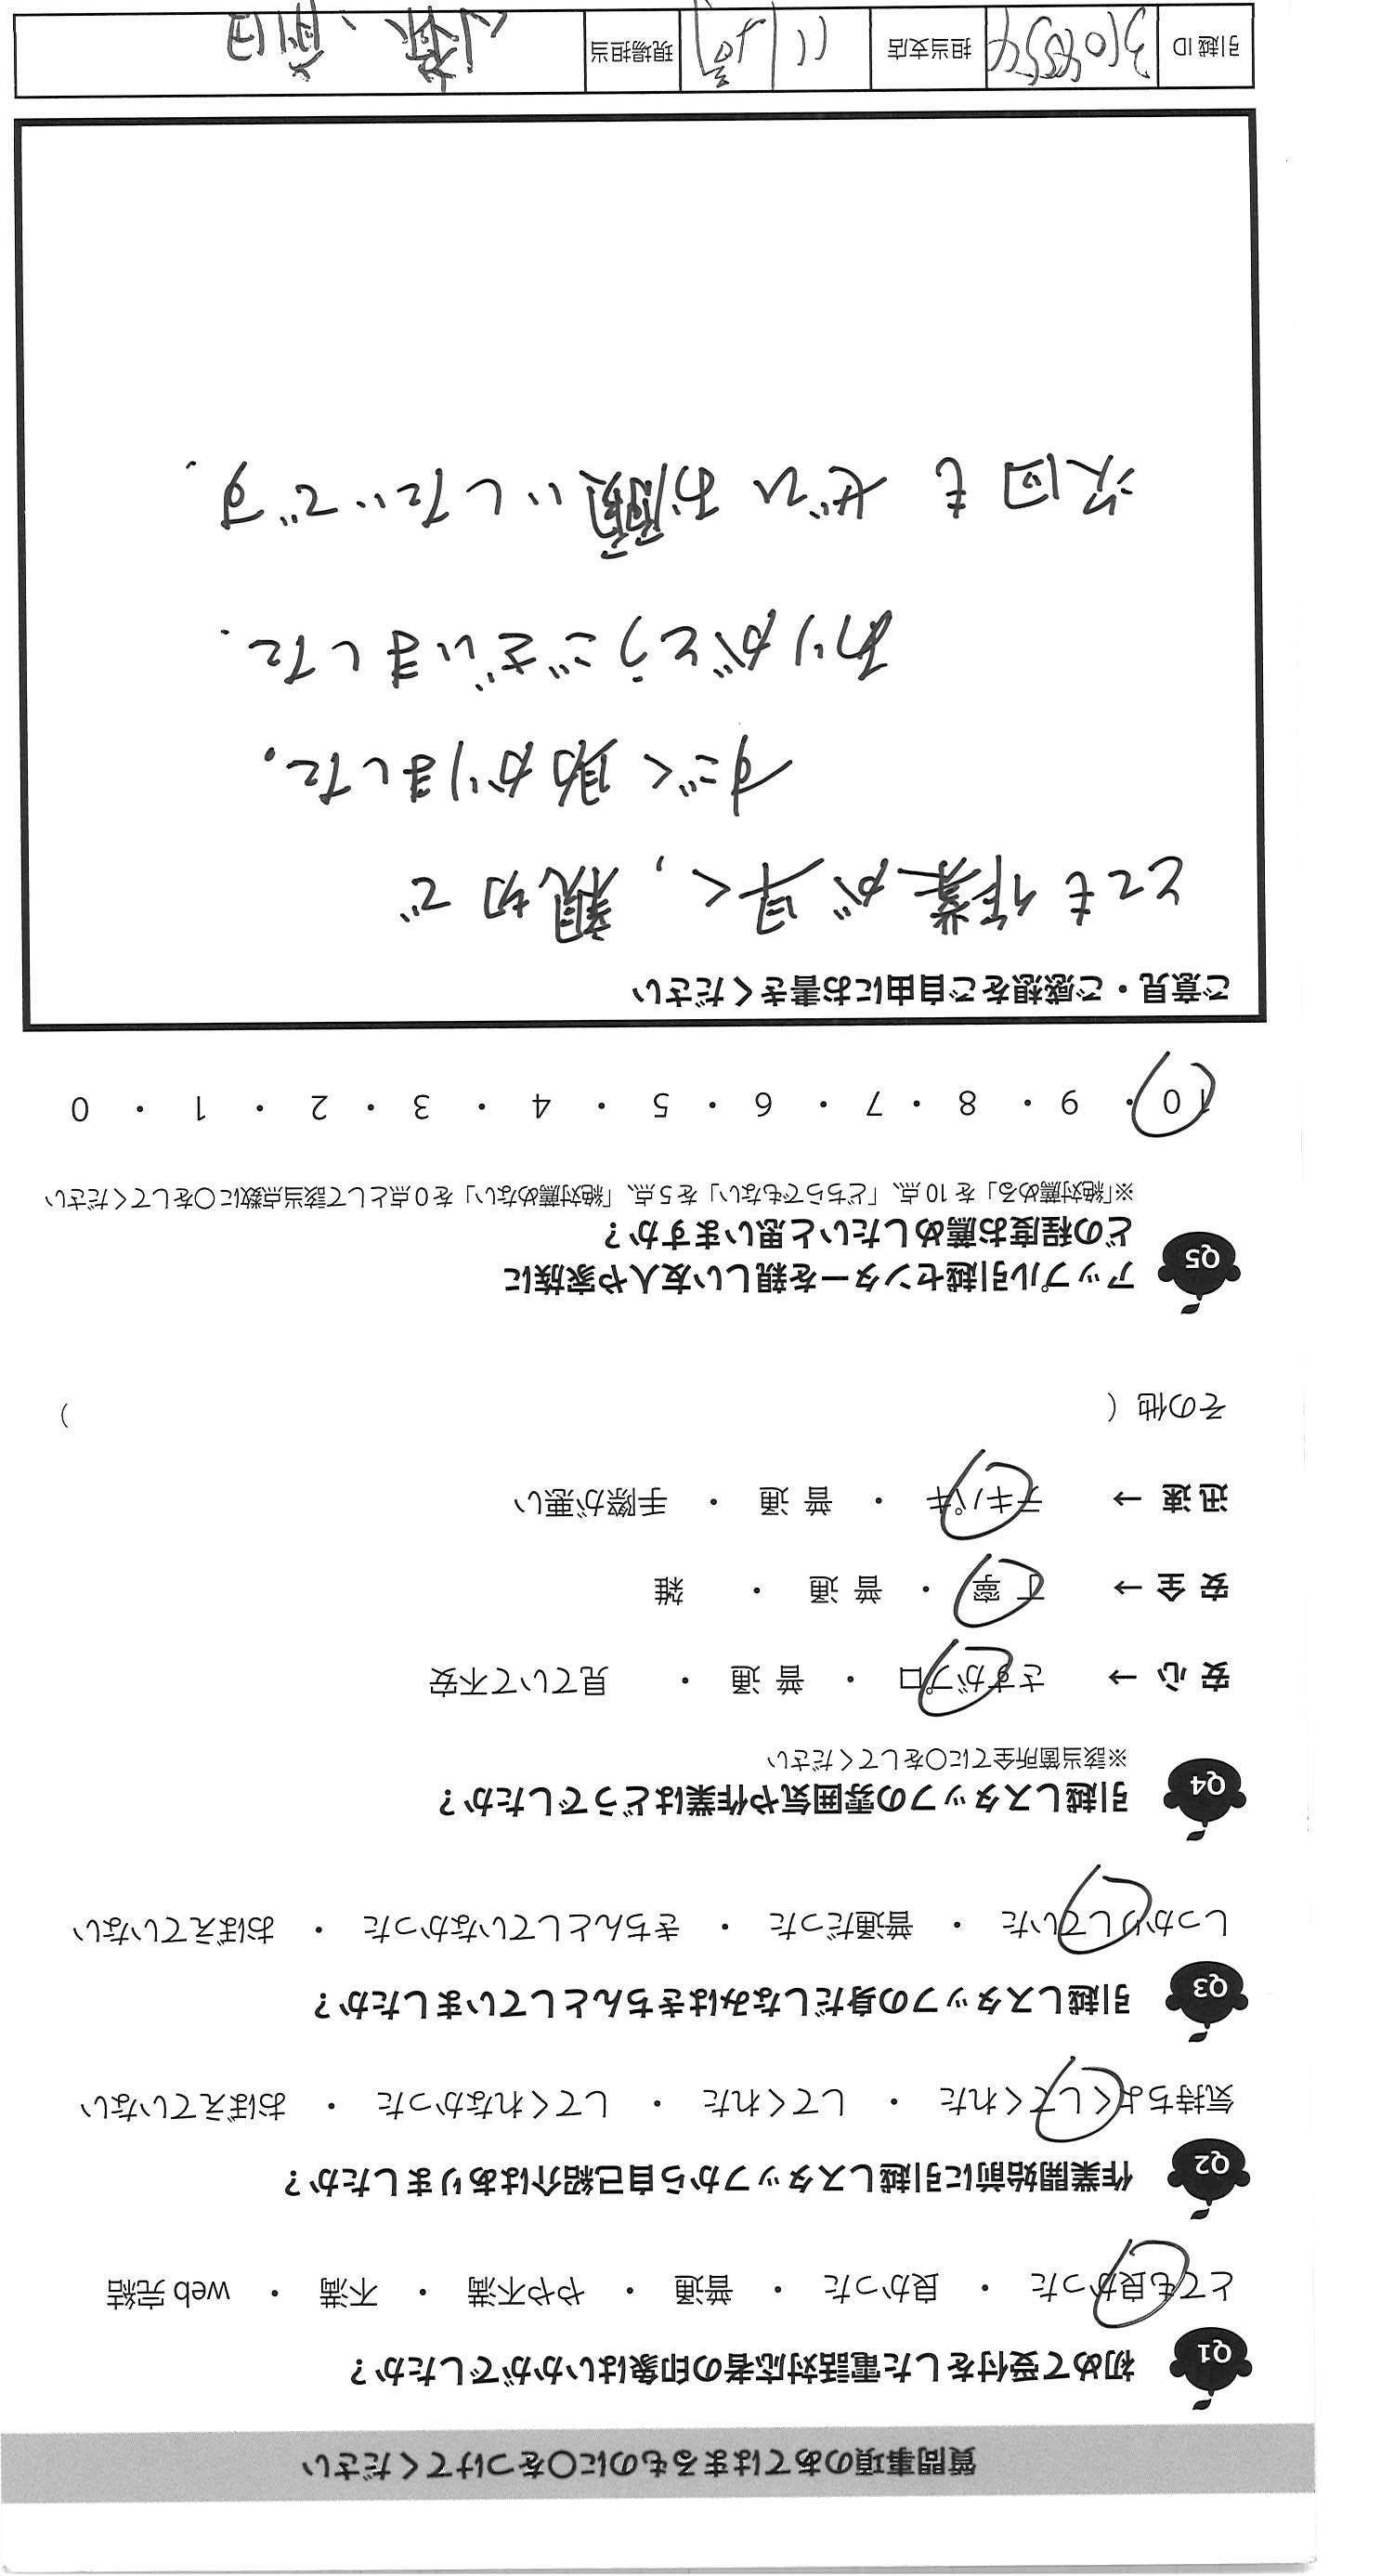 質問事項のあてはまるものに〇をつけてください
Q1 初めて受付をした電話対応者の印象はいかがでしたか？
とても良かった ・ 良かった ・ 普通 ・ やや不満 ・ 不満 ・ web 完結
Q2 作業開始前に引越しスタッフから自己紹介はありましたか？
気持ちよくしてくれた ・ してくれた ・ してくれなかった ・ おぼえていない
Q3 引越しスタッフの身だしなみはきちんとしていましたか？
しっかりしていた ・ 普通だった ・ きちんとしていなかった ・ おぼえていない
Q4 引越しスタッフの雰囲気や作業はどうでしたか？
※該当箇所全てに〇をしてください
安 心 → さすがプロ ・ 普 通 ・ 見ていて不安
安 全 → 丁 寧 ・ 普 通 ・ 雑
迅 速 → テキパキ ・ 普 通 ・ 手際が悪い
その他（ ）
Q5 アップル引越センターを親しい友人や家族に
どの程度お薦めしたいと思いますか？
※「絶対薦める」を 10 点、「どちらでもない」を 5 点、「絶対薦めない」を 0 点として該当点数に〇をしてください
10 ・ 9 ・ 8 ・ 7 ・ 6 ・ 5 ・ 4 ・ 3 ・ 2 ・ 1 ・ 0
ご意見・ご感想をご自由にお書きください
とても作業が早く, 親切で
すごく助かりました。
ありがとうございました.
次回も ぜひ お願いしたいです.
引越 ID 担当支店 現場担当